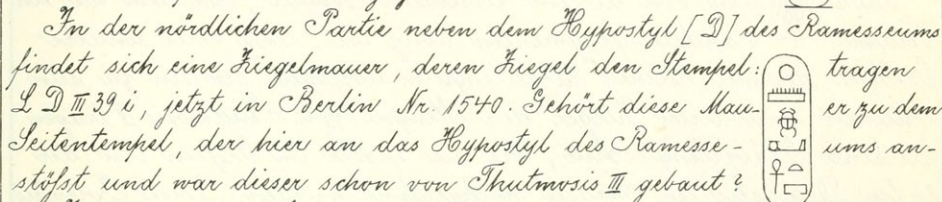 In der nördlichen Partie neben dem Hypostyl [D] des Ramesseums
findet sich eine Ziegelmauer, deren Ziegel den Stempel: tragen
L D III 39 i, jetzt in Berlin Nr. 1540. Gehört diese Mau- er zu dem
Seitentempel, der hier an das Hypostyl des Ramesse- ums an-
stöſst und war dieser schon von Thutmosis III gebaut?